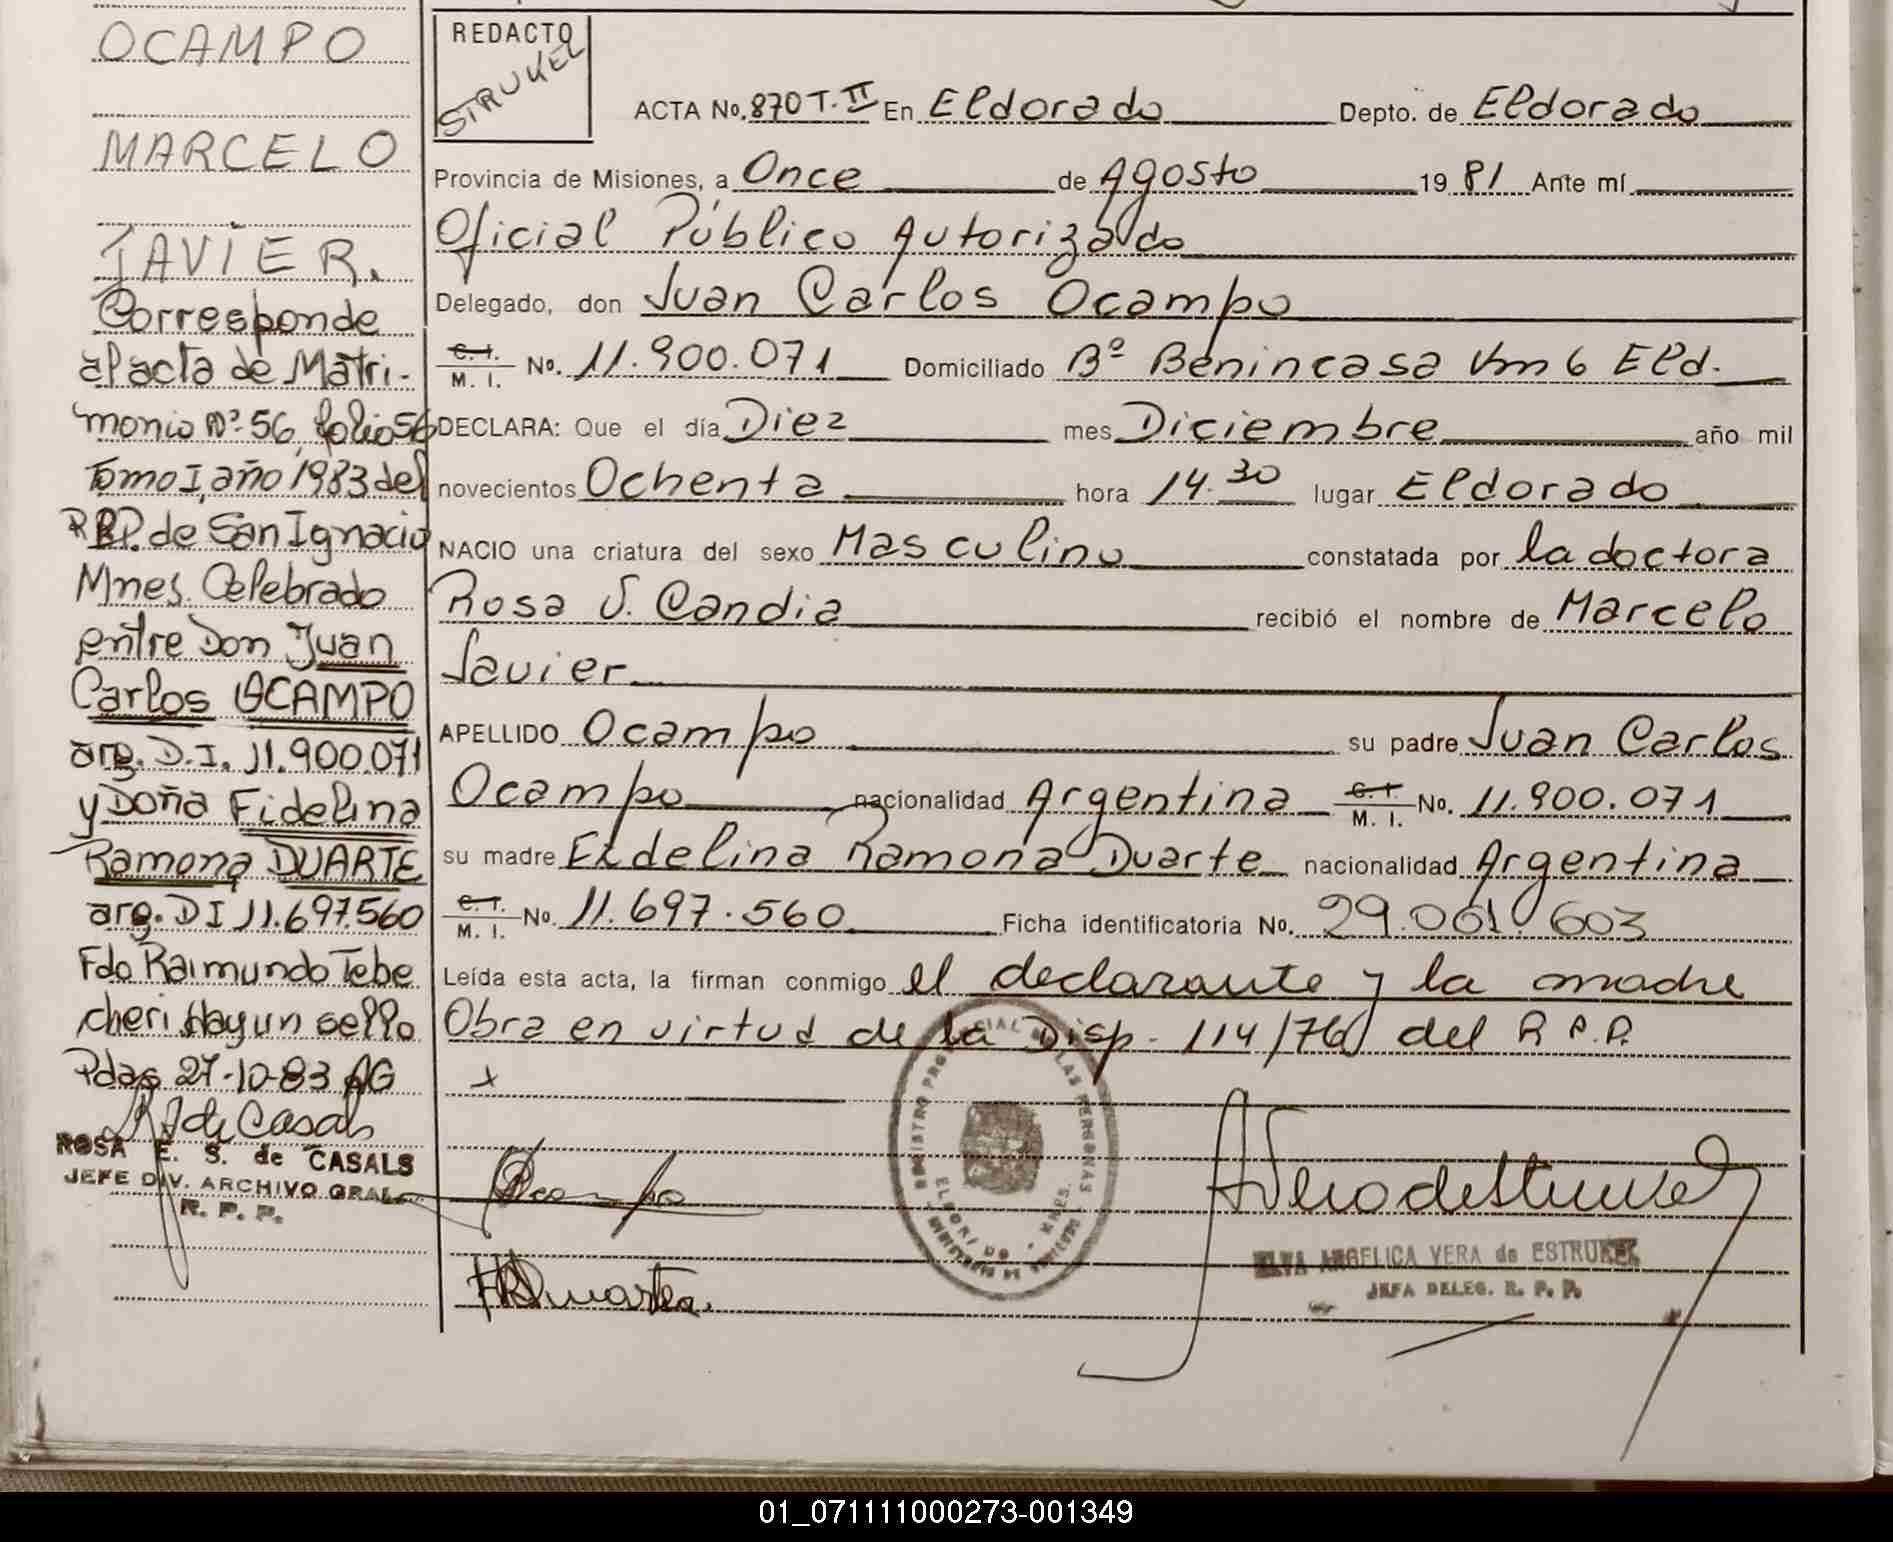 OCAMPO
MARCELO
JAVIER.
Corresponde
al acta de Matri-
monio Nº 56, folio 56
Tomo I, año 1983 del
R.P. de San Ignacio
Mnes. Celebrado
entre Don Juan
Carlos OCAMPO
arg. D.I. 11.900.071
y Doña Fidelina
Ramona DUARTE
arg. DI 11.697.560
Fdo Raimundo Tebe
cheri Hay un sello
Pdas 27-10-83 AG
R de Casals
ROSA E. S. de CASALS
JEFE DIV. ARCHIVO GRAL
R. P. P.
REDACTO
STRUKEL
ACTA No. 870 T. II En Eldorado Depto. de Eldorado
Provincia de Misiones, a Once de Agosto 19 81 Ante mí
Oficial Público Autorizado
Delegado, don Juan Carlos Ocampo
C. I. M. I. No. 11.900.071 Domiciliado Bº Benincasa Km 6 Eld.
DECLARA: Que el día Diez mes Diciembre año mil
novecientos Ochenta hora 14.30 lugar Eldorado
NACIO una criatura del sexo Masculino constatada por la doctora
Rosa S. Candia recibió el nombre de Marcelo
Javier
APELLIDO Ocampo su padre Juan Carlos
Ocampo nacionalidad Argentina C. I. M. I. No. 11.900.071
su madre Fidelina Ramona Duarte nacionalidad Argentina
C. I. M. I. No. 11.697.560 Ficha identificatoria No. 29.061.603
Leída esta acta, la firman conmigo el declarante y la madre
Obra en virtud de la Disp. 114/76 del R.P.P.
x
Ocampo
REGISTRO PROVINCIAL DE LAS PERSONAS
ELDORADO - MNES.
FRDuarte
ELVA ANGELICA VERA de ESTRUKEL
JEFA DELEG. R. P. P.
01_071111000273-001349